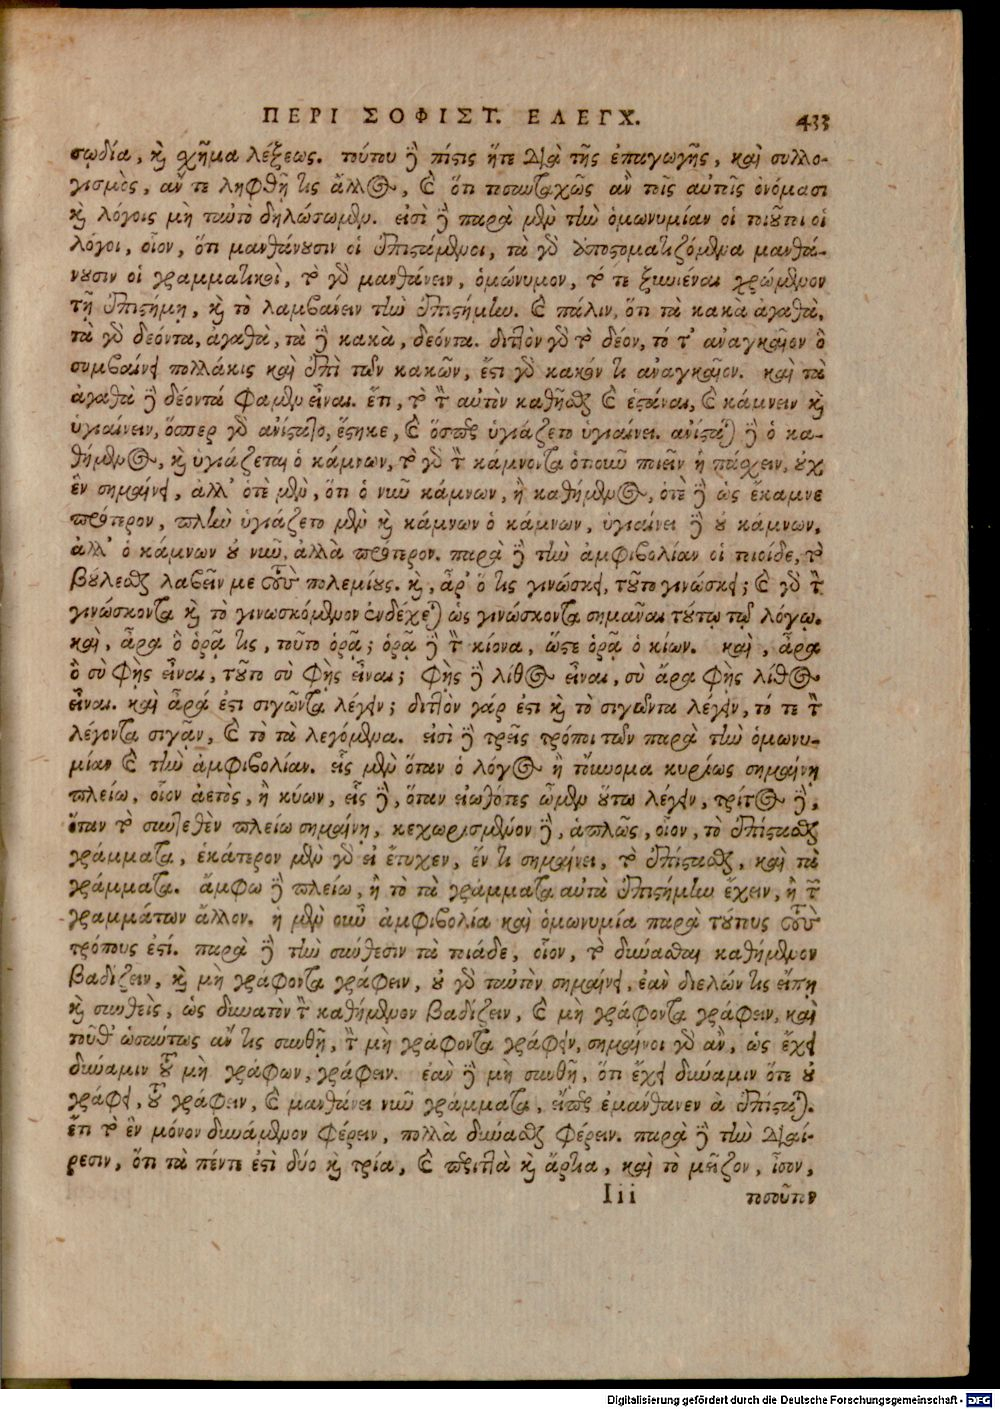 ΠΕΡΙ ΣΟΦΙΣΤ. ΕΛΕΓΧ. 433
σῳδία, καὶ χῆμα λέξεως. τούτου δὲ πίστις ἥτε διὰ τῆς ἐπαγωγῆς, καὶ συλλο-
γισμὸς, ἄν τε ληφθῇ τις ἄλλος, καὶ ὅτι τοσαυταχῶς ἂν τοῖς αὐτοῖς ὀνόμασι
καὶ λόγοις μὴ ταὐτὸ δηλώσωμεν. εἰσὶ δὲ παρὰ μὲν τὴν ὁμωνυμίαν οἱ τοιοῦτοι οἱ
λόγοι, οἷον, ὅτι μανθάνουσιν οἱ ἐπιστάμενοι, τὰ γὰρ ἀποστοματιζόμενα μανθά-
νουσιν οἱ γραμματικοὶ, τὸ γὰρ μανθάνειν, ὁμώνυμον, τό τε ξυνιέναι χρώμενον
τῇ ἐπιστήμῃ, καὶ τὸ λαμβάνειν τὴν ἐπιστήμην. καὶ πάλιν, ὅτι τὰ κακὰ ἀγαθὰ,
τὰ γὰρ δέοντα, ἀγαθὰ, τὰ δὲ κακὰ, δέοντα. διττὸν γὰρ τὸ δέον, τό τ' ἀναγκαῖον ὃ
συμβαίνει πολλάκις καὶ ἐπὶ τῶν κακῶν, ἔστι γὰρ κακόν τι ἀναγκαῖον. καὶ τὰ
ἀγαθὰ δὲ δέοντά φαμεν εἶναι. ἔτι, τὸ τὸν αὐτὸν καθῆσθαι καὶ ἑστάναι, καὶ κάμνειν καὶ
ὑγιαίνειν, ὅσπερ γὰρ ἀνίστατο, ἕστηκε, καὶ ὅσπερ ὑγιάζετο ὑγιαίνει. ἀνίσταται δὲ ὁ κα-
θήμενος, καὶ ὑγιάζεται ὁ κάμνων, τὸ γὰρ τὸν κάμνοντα ὁτιοῦν ποιεῖν ἢ πάσχειν, οὐχ
ἓν σημαίνει, ἀλλ' ὁτὲ μὲν, ὅτι ὁ νῦν κάμνων, ἢ καθήμενος, ὁτὲ δὲ ὡς ἔκαμνε
πρότερον, πλὴν ὑγιάζετο μὲν καὶ κάμνων ὁ κάμνων, ὑγιαίνει δὲ οὐ κάμνων,
ἀλλ' ὁ κάμνων οὐ νῦν, ἀλλὰ πρότερον. παρὰ δὲ τὴν ἀμφιβολίαν οἱ τοιοίδε, τὸ
βούλεσθαι λαβεῖν με τοὺς πολεμίους. καὶ, ἆρ' ὅ τις γινώσκει, τοῦτο γινώσκει; καὶ γὰρ τὸν
γινώσκοντα καὶ τὸ γινωσκόμενον ἐνδέχεται ὡς γινώσκοντα σημᾶναι τούτῳ τῷ λόγῳ.
καὶ, ἆρα ὃ ὁρᾷ τις, τοῦτο ὁρᾷ; ὁρᾷ δὲ τὸν κίονα, ὥστε ὁρᾷ ὁ κίων. καὶ, ἆρα
ὃ σὺ φῂς εἶναι, τοῦτο σὺ φῂς εἶναι; φῂς δὲ λίθος εἶναι, σὺ ἄρα φῂς λίθος
εἶναι. καὶ ἆρά ἐστι σιγῶντα λέγειν; διττὸν γάρ ἐστι καὶ τὸ σιγῶντα λέγειν, τό τε τὸν
λέγοντα σιγᾶν, καὶ τὸ τὰ λεγόμενα. εἰσὶ δὲ τρεῖς τρόποι τῶν παρὰ τὴν ὁμωνυ-
μίαν καὶ τὴν ἀμφιβολίαν. εἷς μὲν ὅταν ὁ λόγος ἢ τοὔνομα κυρίως σημαίνῃ
πλείω, οἷον ἀετὸς, ἢ κύων, εἷς δὲ, ὅταν εἰωθότες ὦμεν οὕτω λέγειν, τρίτος δὲ,
ὅταν τὸ συντεθὲν πλείω σημαίνῃ, κεχωρισμένον δὲ, ἁπλῶς, οἷον, τὸ ἐπίσταται
γράμματα, ἑκάτερον μὲν γὰρ εἰ ἔτυχεν, ἕν τι σημαίνει, τὸ ἐπίσταται, καὶ τὰ
γράμματα. ἄμφω δὲ πλείω, ἢ τὸ τὰ γράμματα αὐτὰ ἐπιστήμην ἔχειν, ἢ τῶν
γραμμάτων ἄλλον. ἡ μὲν οὖν ἀμφιβολία καὶ ὁμωνυμία παρὰ τούτους τοὺς
τρόπους ἐστί. παρὰ δὲ τὴν σύνθεσιν τὰ τοιάδε, οἷον, τὸ δύνασθαι καθήμενον
βαδίζειν, καὶ μὴ γράφοντα γράφειν, οὐ γὰρ ταὐτὸν σημαίνει, ἐὰν διελών τις εἴπῃ
καὶ συνθεὶς, ὡς δυνατὸν τὸν καθήμενον βαδίζειν, καὶ μὴ γράφοντα γράφειν, καὶ
τοῦθ' ὡσαύτως ἄν τις συνθῇ, τὸν μὴ γράφοντα γράφειν, σημαίνοι γὰρ ἂν, ὡς ἔχει
δύναμιν τοῦ μὴ γράφων, γράφειν. ἐὰν δὲ μὴ συνθῇ, ὅτι ἔχει δύναμιν ὅτε οὐ
γράφει, τοῦ γράφειν, καὶ μανθάνει νῦν γράμματα, εἴπερ ἐμάνθανεν ἃ ἐπίσταται.
ἔτι τὸ ἓν μόνον δυνάμενον φέρειν, πολλὰ δύνασθαι φέρειν. παρὰ δὲ τὴν διαί-
ρεσιν, ὅτι τὰ πέντε ἐστὶ δύο καὶ τρία, καὶ περιττὰ καὶ ἄρτια, καὶ τὸ μεῖζον, ἴσον,
Iii τοσοῦτον
Digitalisierung gefördert durch die Deutsche Forschungsgemeinschaft - DFG